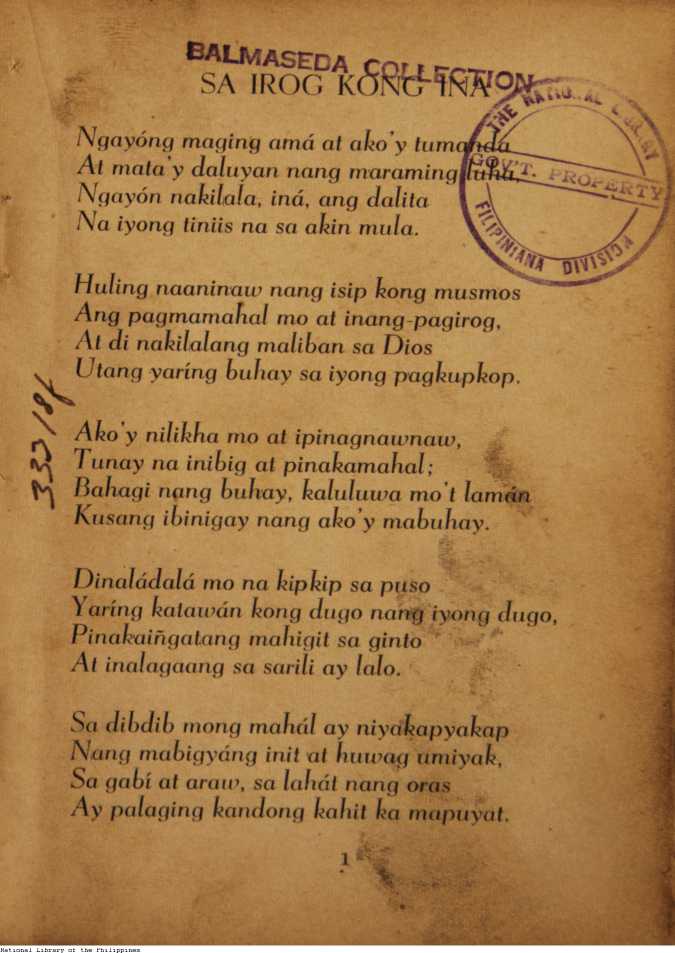 BALMASEDA COLLECTION
SA IROG KONG INA
THE NATIONAL LIBRARY
GOV'T. PROPERTY
FILIPINIANA DIVISION
Ngayóng maging amá at ako'y tumanda
At mata'y daluyan nang maraming luha,
Ngayón nakilala, iná, ang dalita
Na iyong tiniis na sa akin mula.
Huling naaninaw nang isip kong musmos
Ang pagmamahal mo at inang-pagirog,
At di nakilalang maliban sa Dios
Utang yaríng buhay sa iyong pagkupkop.
333/8f
Ako'y nilikha mo at ipinagnawnaw,
Tunay na inibig at pinakamahal;
Bahagi nang buhay, kaluluwa mo't lamán
Kusang ibinigay nang ako'y mabuhay.
Dinaládalá mo na kipkip sa puso
Yaríng katawán kong dugo nang iyong dugo,
Pinakaiñgatang mahigit sa ginto
At inalagaang sa sarili ay lalo.
Sa dibdib mong mahál ay niyakapyakap
Nang mabigyáng init at huwag umiyak,
Sa gabí at araw, sa lahát nang oras
Ay palaging kandong kahit ka mapuyat.
1
National Library of the Philippines